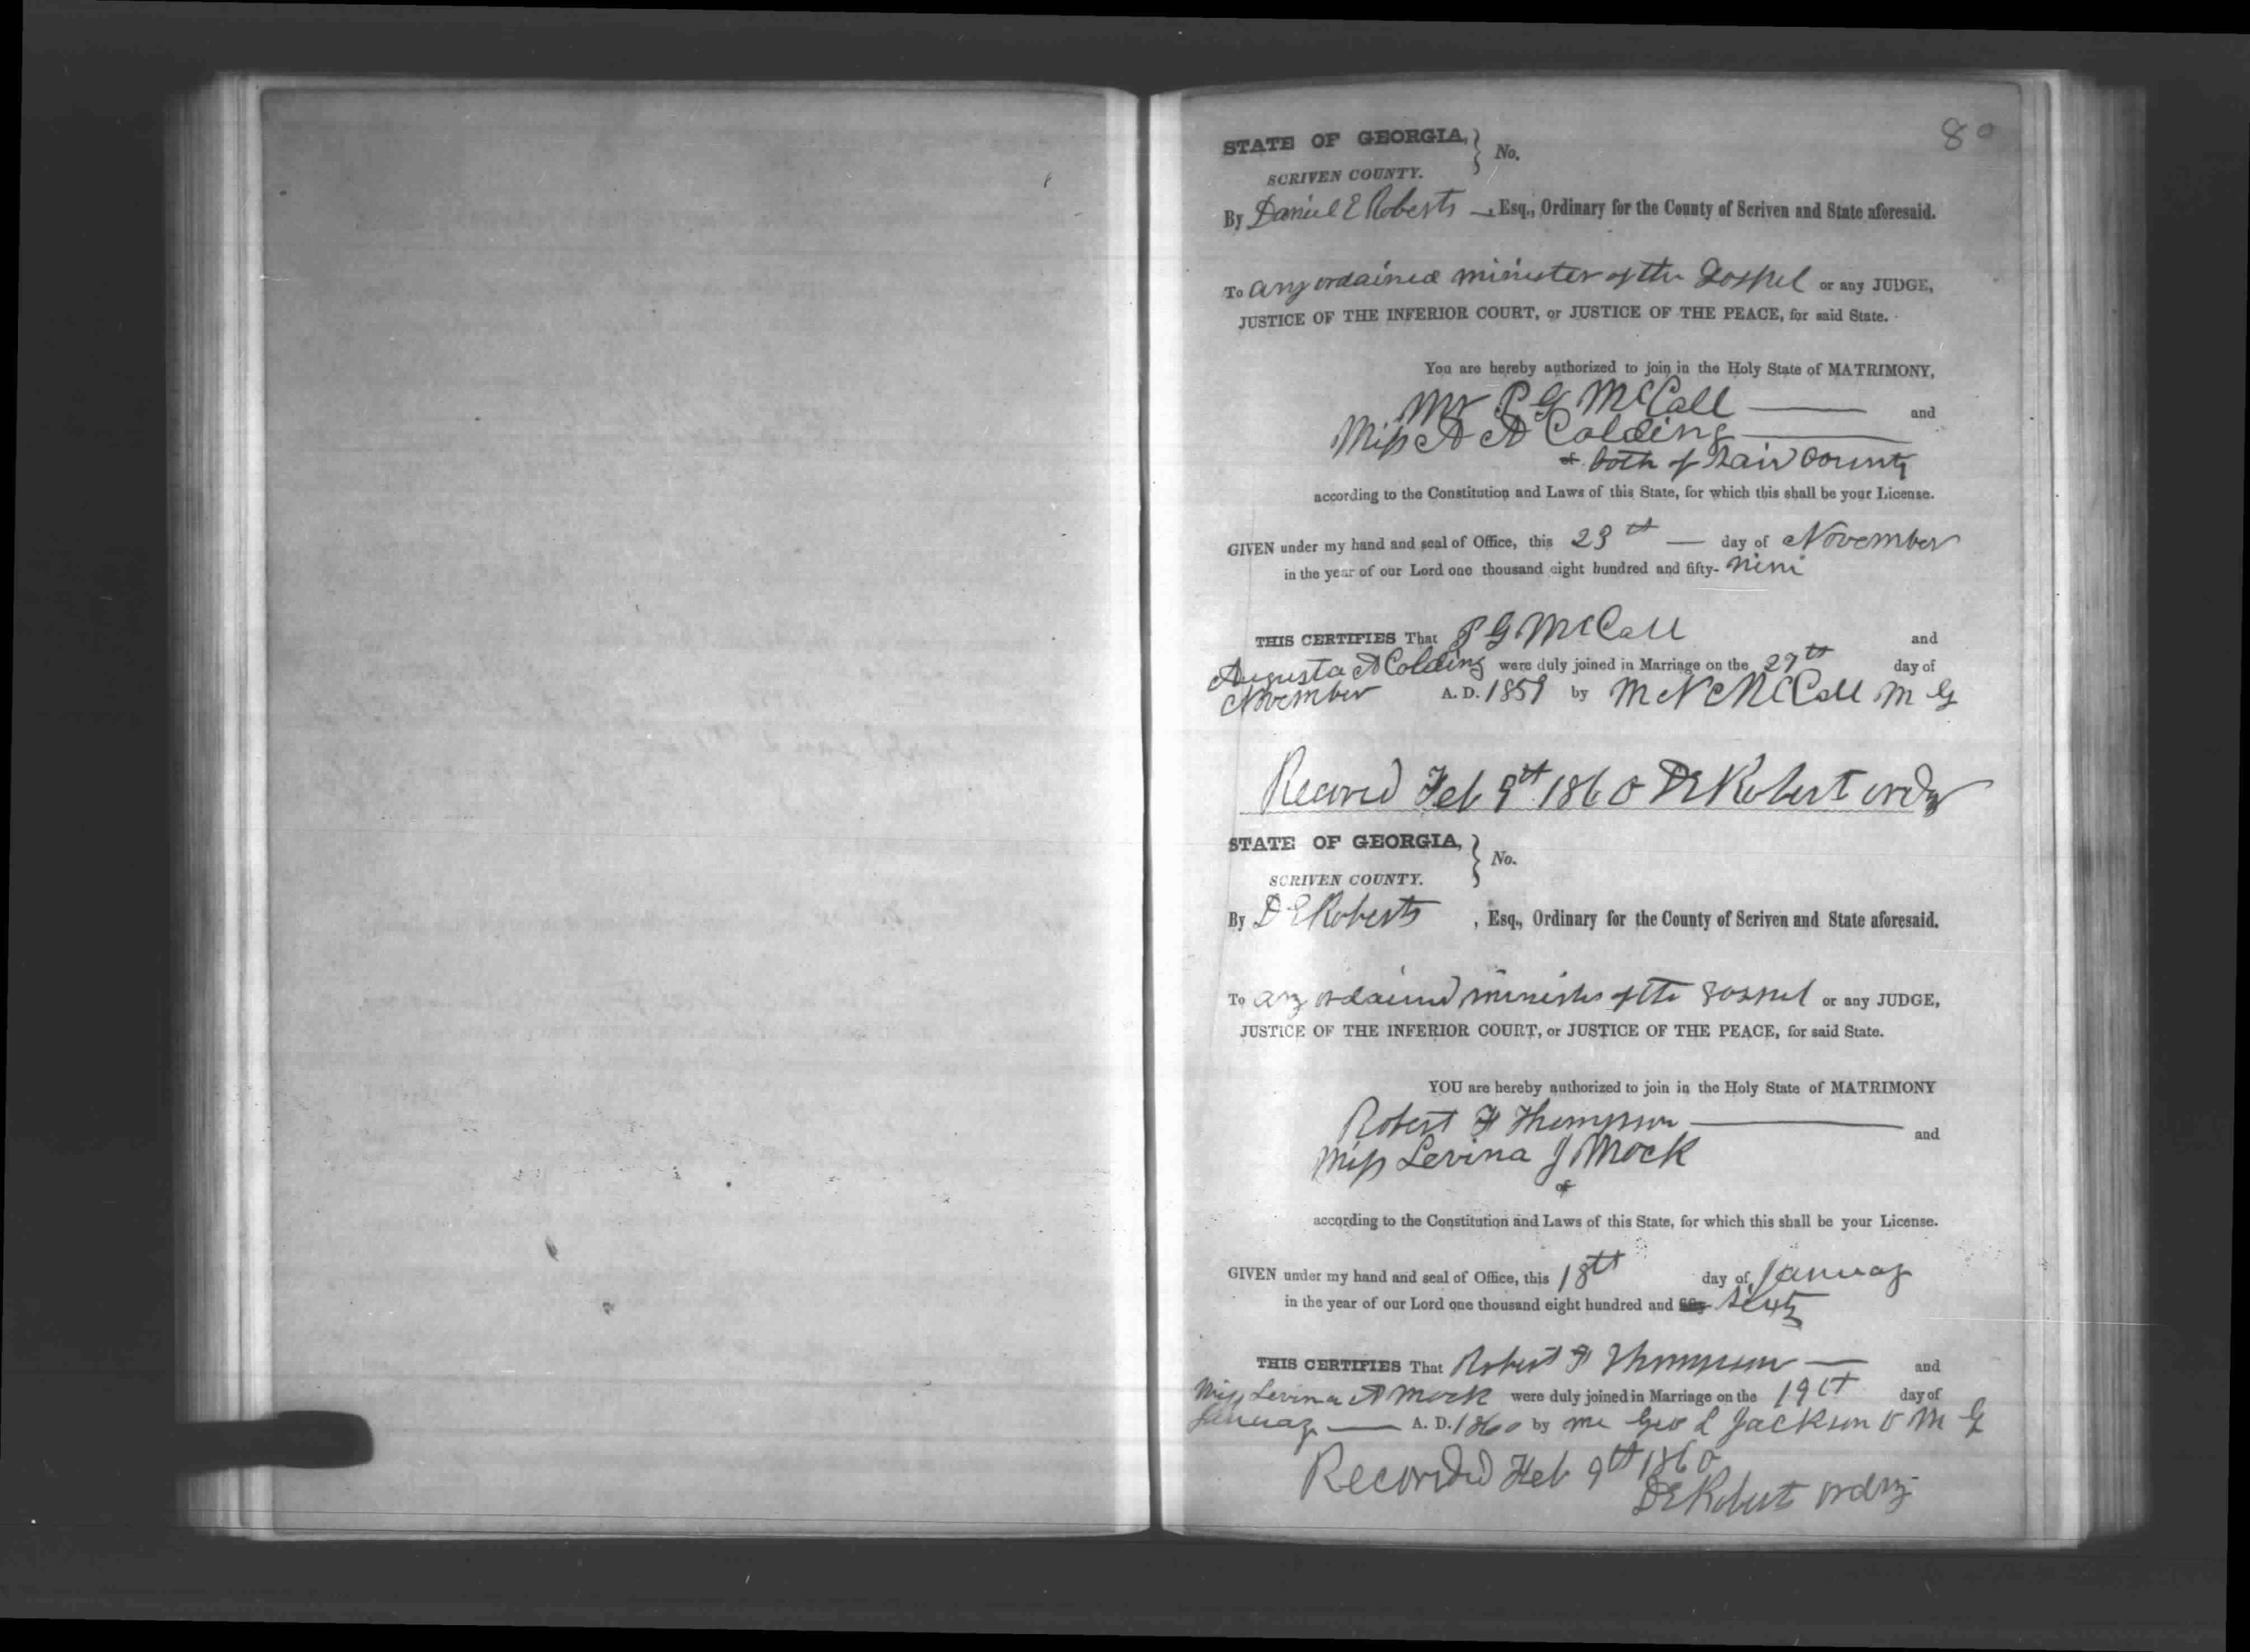 80
STATE OF GEORGIA, } No.
SCRIVEN COUNTY.
By Daniel E Roberts, Esq., Ordinary for the County of Scriven and State aforesaid.
To any ordained minister of the Gospel or any JUDGE,
JUSTICE OF THE INFERIOR COURT, or JUSTICE OF THE PEACE, for said State.
You are hereby authorized to join in the Holy State of MATRIMONY,
Mr P G McCall and
Miss A A Colding
of both of said county
according to the Constitution and Laws of this State, for which this shall be your License.
GIVEN under my hand and seal of Office, this 23th day of November
in the year of our Lord one thousand eight hundred and fifty-nine
THIS CERTIFIES That P G McCall and
Augusta A Colding were duly joined in Marriage on the 27th day of
November A. D. 1859 by McCall M G
Record Feb 9th 1860 DE Robert ordy
STATE OF GEORGIA, } No.
SCRIVEN COUNTY.
By D E Roberts, Esq., Ordinary for the County of Scriven and State aforesaid.
To any ordained minister of the gospel or any JUDGE,
JUSTICE OF THE INFERIOR COURT, or JUSTICE OF THE PEACE, for said State.
YOU are hereby authorized to join in the Holy State of MATRIMONY
Robert F Thompson and
Miss Levina J Mock
of
according to the Constitution and Laws of this State, for which this shall be your License.
GIVEN under my hand and seal of Office, this 18th day of January
in the year of our Lord one thousand eight hundred and fifty sixty
THIS CERTIFIES That Robert F Thompson and
Miss Levina A Mock were duly joined in Marriage on the 19th day of
January A. D. 1860 by me Geo L Jackson O M G
Recorded Feb 9th 1860
DE Roberts ordry